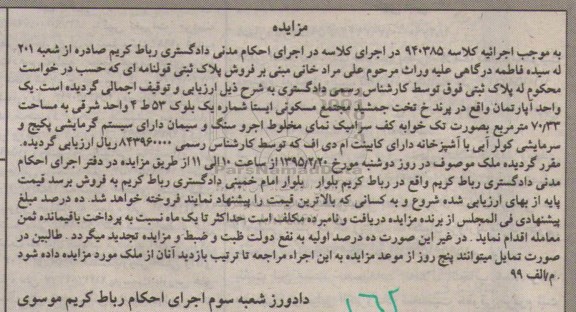 مزایده
به موجب اجرائیه کلاسه ۹۴۰۳۸۵ در اجرای کلاسه در اجرای احکام مدنی دادگستری رباط کریم صادره از شعبه ۲۰۱
له سیده فاطمه درگاهی علیه وراث مرحوم علی مراد خانی مبنی بر فروش پلاک ثبتی قولنامه ای که حسب در خواست
محکوم له پلاک ثبتی فوق توسط کارشناس رسمی دادگستری به شرح ذیل ارزیابی و توقیف اجمالی گردیده است. یک
واحد آپارتمان واقع در پرند خ تخت جمشید مجتمع مسکونی ایستا شماره یک بلوک ۵۳ ط ۴ واحد شرقی به مساحت
۷۰/۳۳ مترمربع بصورت تک خوابه کف سرامیک نمای مخلوط اجرو سنگ و سیمان دارای سیستم گرمایشی پکیج و
سرمایشی کولر آبی با آشپزخانه دارای کابینت ام دی اف که توسط کارشناس رسمی ۸۴۳۹۶۰۰۰۰ ریال ارزیابی گردیده.
مقرر گردیده ملک موصوف در روز دوشنبه مورخ ۱۳۹۵/۲/۲۰ از ساعت ۱۰ الی ۱۱ از طریق مزایده در دفتر اجرای احکام
مدنی دادگستری رباط کریم واقع در رباط کریم بلوار بلوار امام خمینی دادگستری رباط کریم به فروش برسد قیمت
پایه از بهای ارزیابی شده شروع و به کسانی که بالاترین قیمت را پیشنهاد نمایند فروخته خواهد شد. ده درصد مبلغ
پیشنهادی فی المجلس از برنده مزایده دریافت و نامبرده مکلف است حداکثر تا یک ماه نسبت به پرداخت باقیمانده ثمن
معامله اقدام نماید . در غیر این صورت ده درصد اولیه به نفع دولت ظبت و ضبط و مزایده تجدید میگردد . طالبین در
صورت تمایل میتوانند پنج روز از موعد مزایده به این اجراء مراجعه تا ترتیب بازدید آنان از ملک مورد مزایده داده شود
. م/الف ۹۹
دادورز شعبه سوم اجرای احکام رباط کریم موسوی
۱۶۲